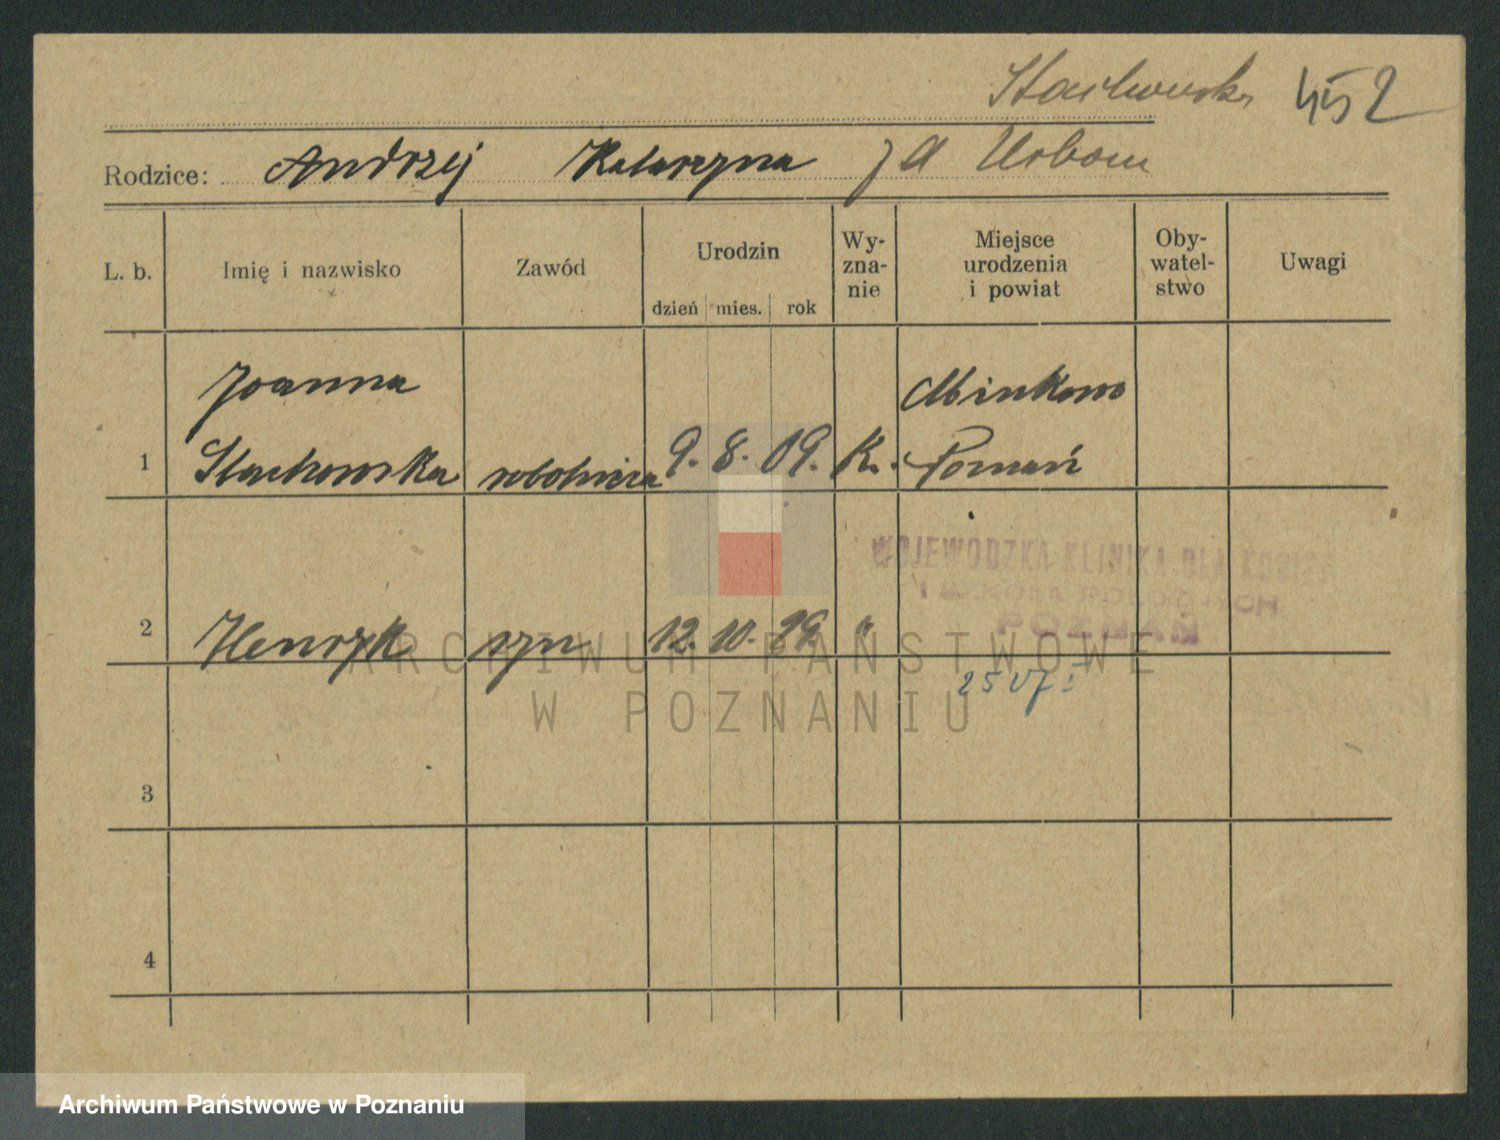 Stachowska 452
Rodzice: Andrzej Katarzyna z d Urban
L. b. Imię i nazwisko Zawód Urodzin dzień mies. rok Wy-zna-nie Miejsce urodzenia i powiat Oby-watel-stwo Uwagi
Joanna Minkowo
1 Stachowska robotnica 9. 8. 09. K. Poznań
WOJEWODZKA KLINIKA DLA KOBIET
POZNAŃ
2 Henryk syn 12. 10. 29. "
ARCHIWUM PAŃSTWOWE
25 VI
W POZNANIU
3
4
Archiwum Państwowe w Poznaniu